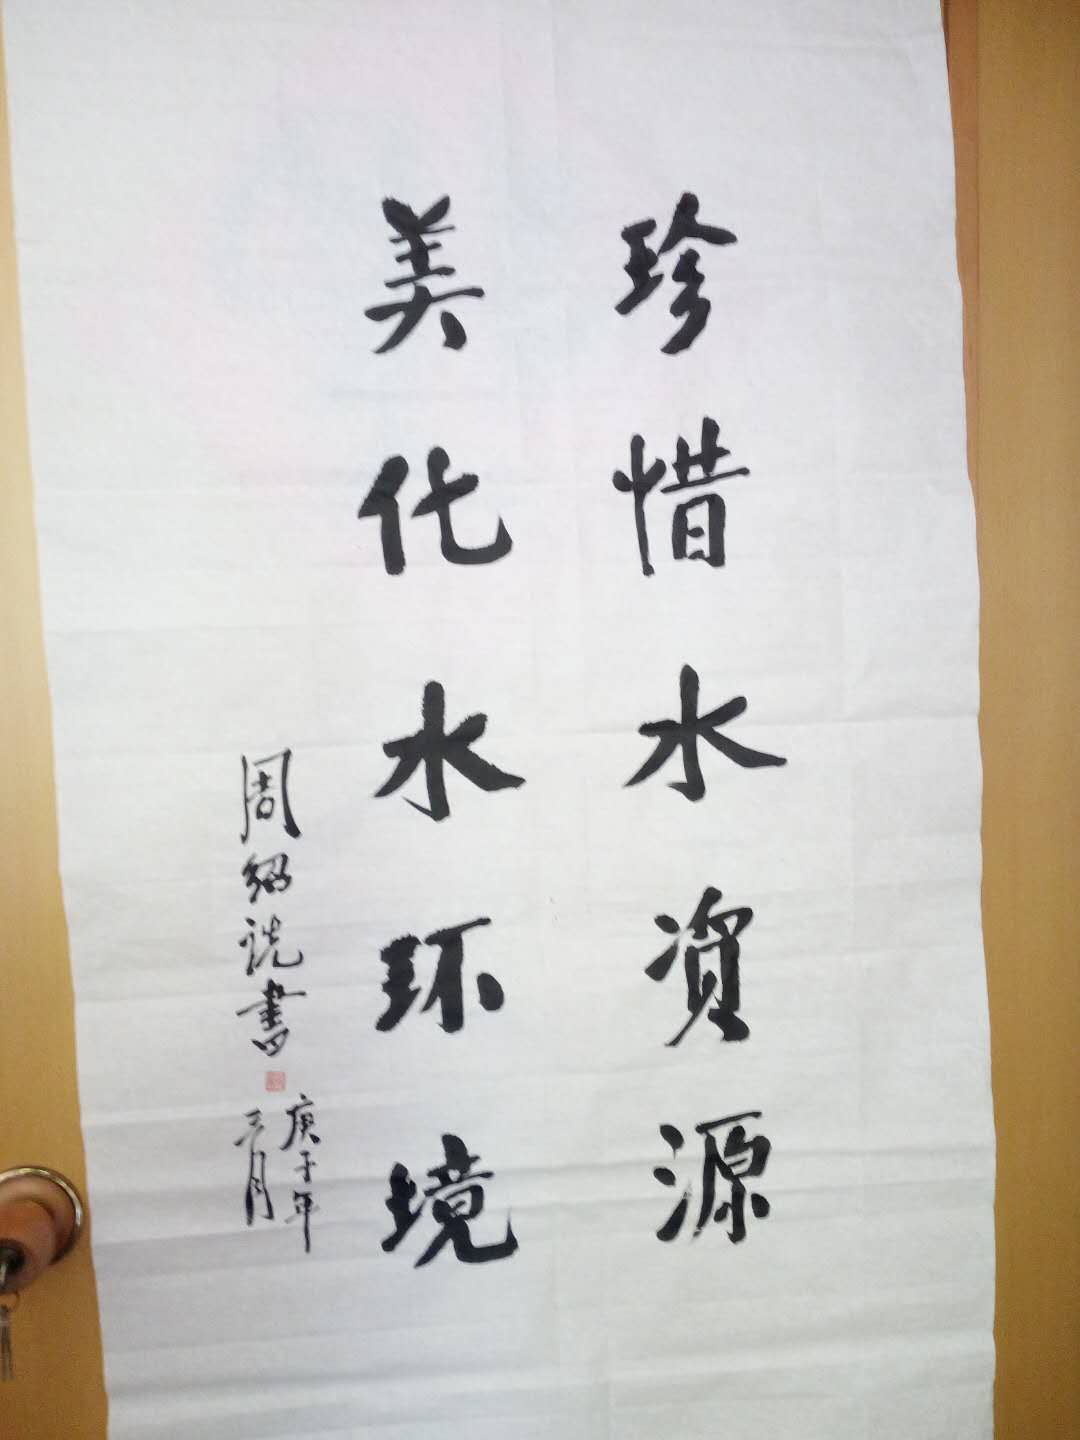 珍惜水资源
美化水环境
周绍诜書
庚子年
三月